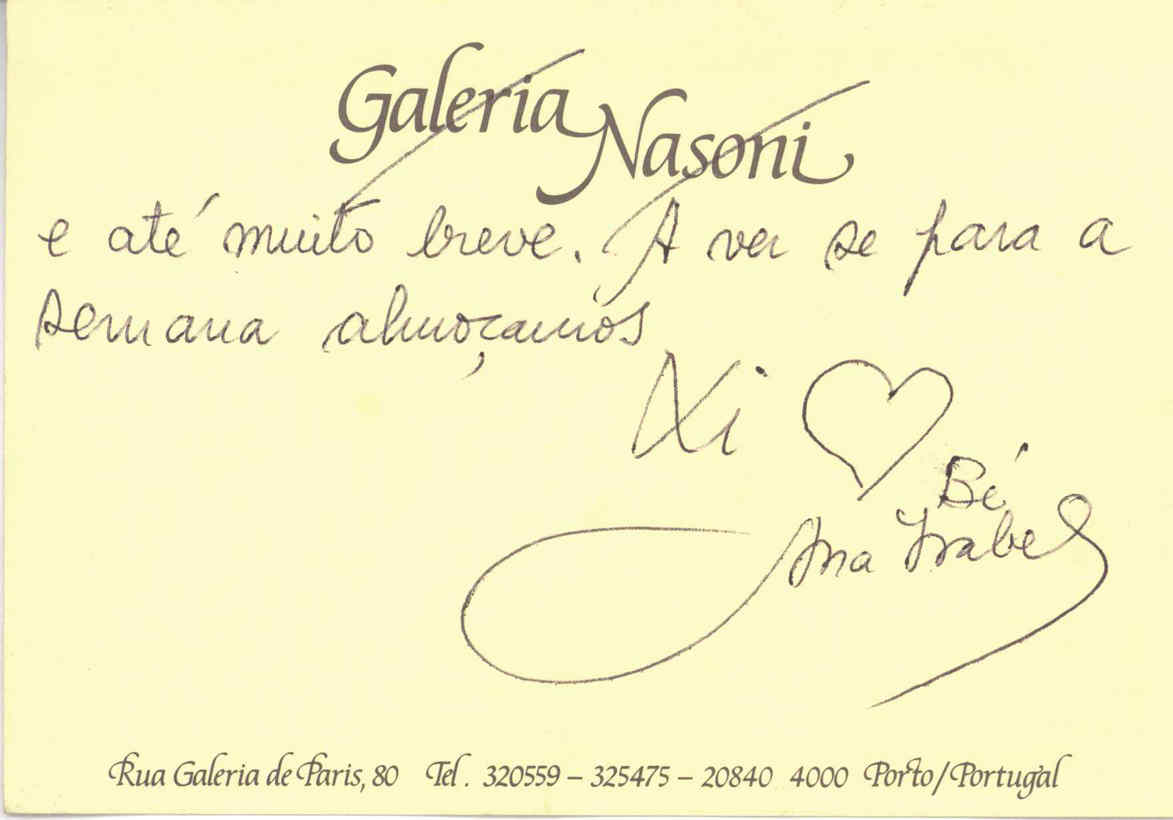 Galeria Nasoni
e até muito breve. A ver se para a
semana almoçamos
Xi ♡
Bé
Ana Isabel
Rua Galeria de Paris, 80 Tel. 320559 – 325475 – 20840 4000 Porto/Portugal